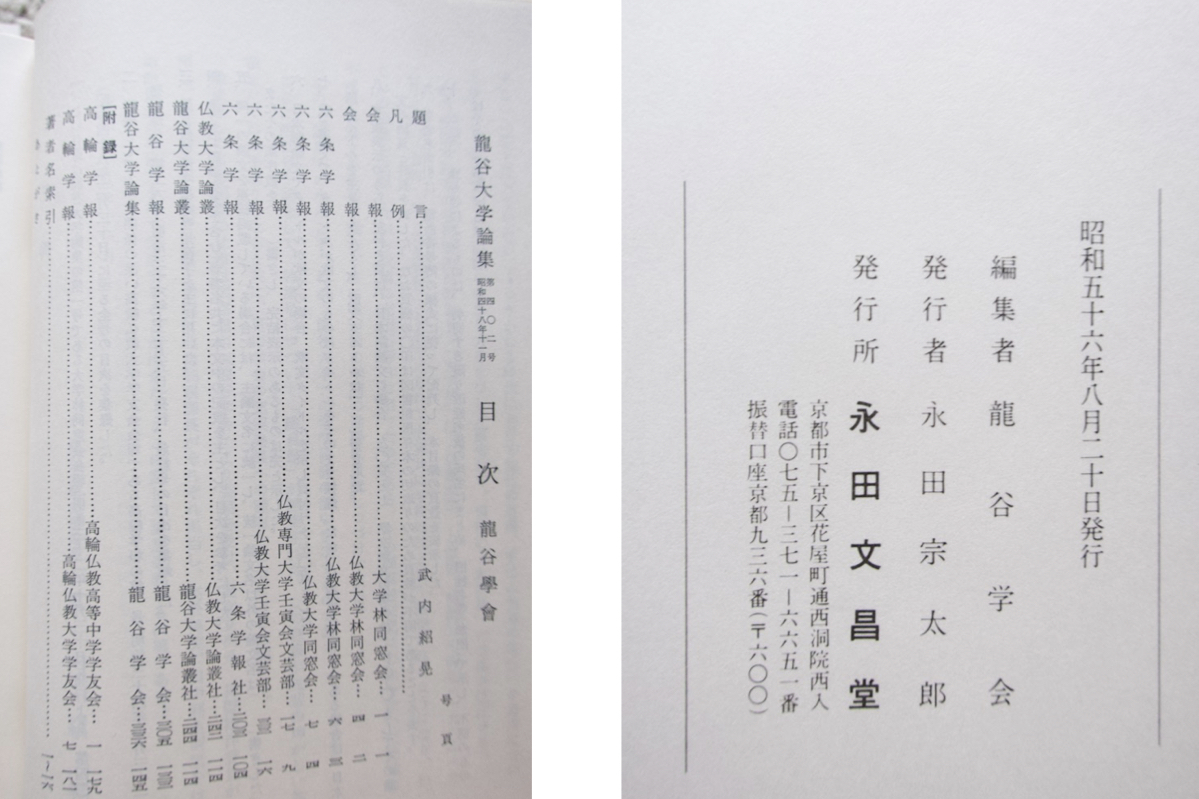 龍谷大学論集 第四〇二号 昭和四十八年十一月 目次 龍谷學會
号 頁
題言 武内紹晃
凡例
会報 大学林同窓会 一 一
会報 仏教大学林同窓会 四 二
六条学報 仏教大学林同窓会 六 三
六条学報 仏教大学同窓会 七 四
六条学報 仏教専門大学壬寅会文芸部 一七 九
六条学報 仏教大学壬寅会文芸部 三三 一六
六条学報 六条学報社 二〇三 一〇四
仏教大学論叢 仏教大学論叢社 二四二 一一四
龍谷大学論叢 龍谷大学論叢社 二四四 一一四
龍谷学報 龍谷学会 三〇五 一三三
龍谷大学論集 龍谷学会 三三六 一四五
〔附録〕
高輪学報 高輪仏教高等中学学友会 一 一七九
高輪学報 高輪仏教大学学友会 七 一八一
著者名索引 一~一六
昭和五十六年八月二十日発行
編集者 龍谷学会
発行者 永田宗太郎
発行所 永田文昌堂
京都市下京区花屋町通西洞院西入
電話〇七五―三七一―六六五一番
振替口座京都九三六番(〒六〇〇)